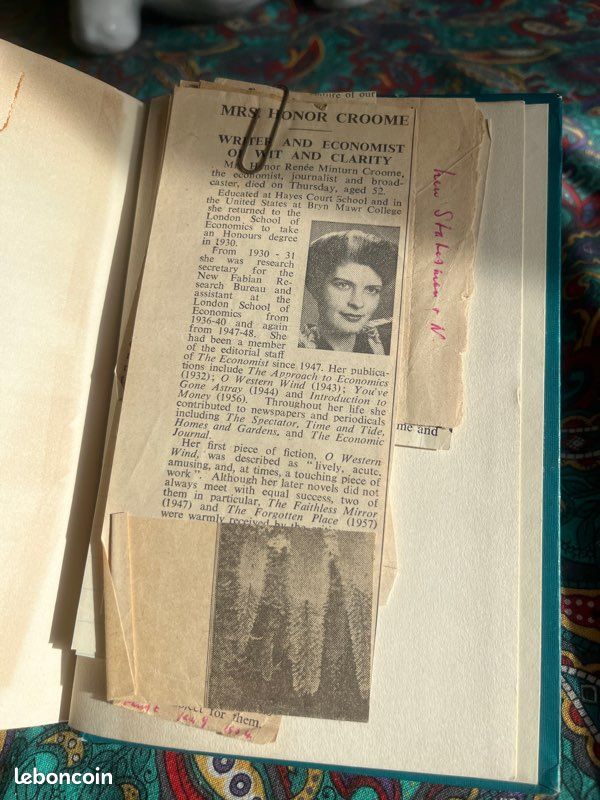 ture of our
MRS. HONOR CROOME
WRITER AND ECONOMIST
OF WIT AND CLARITY
Mrs. Honor Renée Minturn Croome,
the economist, journalist and broad-
caster, died on Thursday, aged 52.
Educated at Hayes Court School and in
the United States at Bryn Mawr College
she returned to the
London School of
Economics to take
an Honours degree
in 1930.
From 1930 - 31
she was research
secretary for the
New Fabian Re-
search Bureau and
assistant at the
London School of
Economics from
1936-40 and again
from 1947-48. She
had been a member
of the editorial staff
of The Economist since 1947. Her publica-
tions include The Approach to Economics
(1932); O Western Wind (1943); You've
Gone Astray (1944) and Introduction to
Money (1956). Throughout her life she
contributed to newspapers and periodicals
including The Spectator, Time and Tide,
Homes and Gardens, and The Economic
Journal.
Her first piece of fiction, O Western
Wind, was described as "lively, acute,
amusing, and, at times, a touching piece of
work". Although her later novels did not
always meet with equal success, two of
them in particular, The Faithless Mirror
(1947) and The Forgotten Place (1957)
were warmly received by the
New Statesman & N
me and
for them.
leboncoin